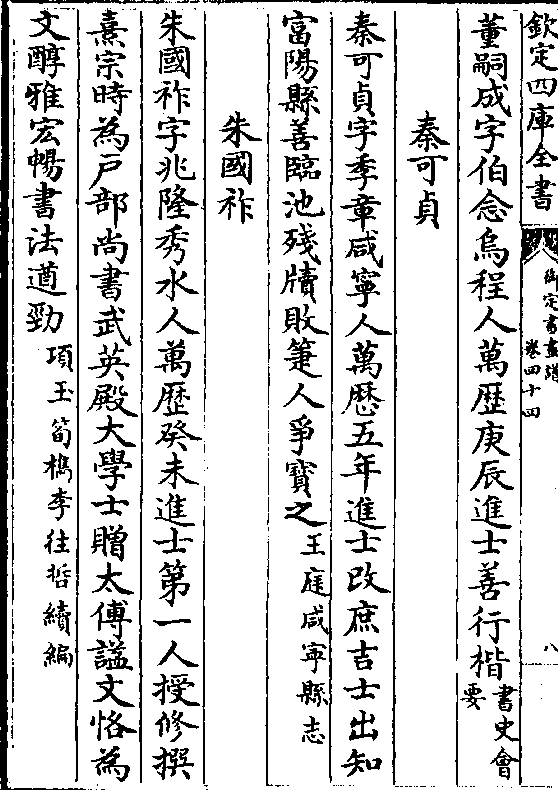 欽定四庫全書
御定書畫譜
卷四十四
八
董嗣成字伯念烏程人萬歴庚辰進士善行楷書史會要
秦可貞
秦可貞字季章咸寧人萬歴五年進士改庶吉士出知
富陽縣善臨池殘牘敗箑人爭寶之王庭咸寧縣志
朱國祚
朱國祚字兆隆秀水人萬歴癸未進士第一人授修撰
熹宗時為戸部尚書武英殿大學士贈太傅諡文恪為
文醇雅宏暢書法遒勁項玉筍檇李往哲續編